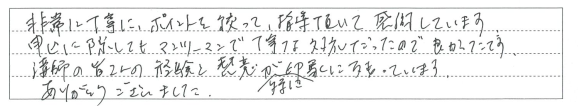 非常に丁寧に、ポイントを絞って、指導頂いて感謝しています
申込に際してもマンツーマンで丁寧な対応だったので良かったです。
講師の皆さんの経験と熱意が
ありがとうございました。